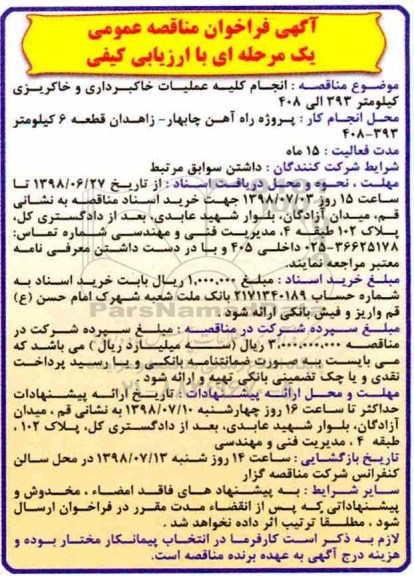 آگهی فراخوان مناقصه عمومی
یک مرحله ای با ارزیابی کیفی
موضوع مناقصه : انجام کلیه عملیات خاکبرداری و خاکریزی
کیلومتر ۳۹۳ الی ۴۰۸
محل انجام کار : پروژه راه آهن چابهار- زاهدان قطعه ۶ کیلومتر
۳۹۳-۴۰۸
مدت فعالیت : ۱۵ ماه
شرایط شرکت کنندگان : داشتن سوابق مرتبط
مهلت ، نحوه و محل دریافت اسناد : از تاریخ ۱۳۹۸/۰۶/۲۷ تا
ساعت ۱۵ روز ۱۳۹۸/۰۷/۰۳ جهت خرید اسناد مناقصه به نشانی
قم، میدان آزادگان، بلوار شهید عابدی، بعد از دادگستری کل،
پلاک ۱۰۲ طبقه ۴، مدیریت فنی و مهندسی شماره تماس:
۰۲۵-۳۶۶۲۵۱۷۸ داخلی ۴۰۵ و با در دست داشتن معرفی نامه
معتبر مراجعه نمایند.
مبلغ خرید اسناد : مبلغ ۱,۰۰۰,۰۰۰ ریال بابت خرید اسناد به
شماره حساب ۲۱۷۱۳۴۰۱۸۹ بانک ملت شعبه شهرک امام حسن (ع)
قم واریز و فیش بانکی ارائه شود .
مبلغ سپرده شرکت در مناقصه : مبلغ سپرده شرکت در
مناقصه ۳,۰۰۰,۰۰۰,۰۰۰ ریال (سه میلیارد ریال ) می باشد که
می بایست به صورت ضمانتنامه بانکی و یا رسید پرداخت
نقدی و یا چک تضمینی بانکی تهیه و ارائه شود .
مهلت و محل ارائه پیشنهادات : تاریخ ارائه پیشنهادات
حداکثر تا ساعت ۱۶ روز چهارشنبه ۱۳۹۸/۰۷/۱۰ به نشانی قم ، میدان
آزادگان، بلوار شهید عابدی، بعد از دادگستری کل، پلاک ۱۰۲ ،
طبقه ۴ ، مدیریت فنی و مهندسی
تاریخ بازگشایی : ساعت ۱۴ روز شنبه ۱۳۹۸/۰۷/۱۳ در محل سالن
کنفرانس شرکت مناقصه گزار
سایر شرایط : به پیشنهاد های فاقد امضاء ، مخدوش و
پیشنهاداتی که پس از انقضاء مدت مقرر در فراخوان ارسال
شود ، مطلقا ترتیب اثر داده نخواهد شد .
لازم به ذکر است کارفرما در انتخاب پیمانکار مختار بوده و
هزینه درج آگهی به عهده برنده مناقصه است.